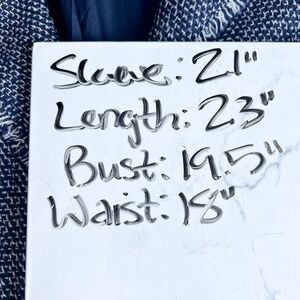 Sleeve: 21"
Length: 23"
Bust: 19.5"
Waist: 18"